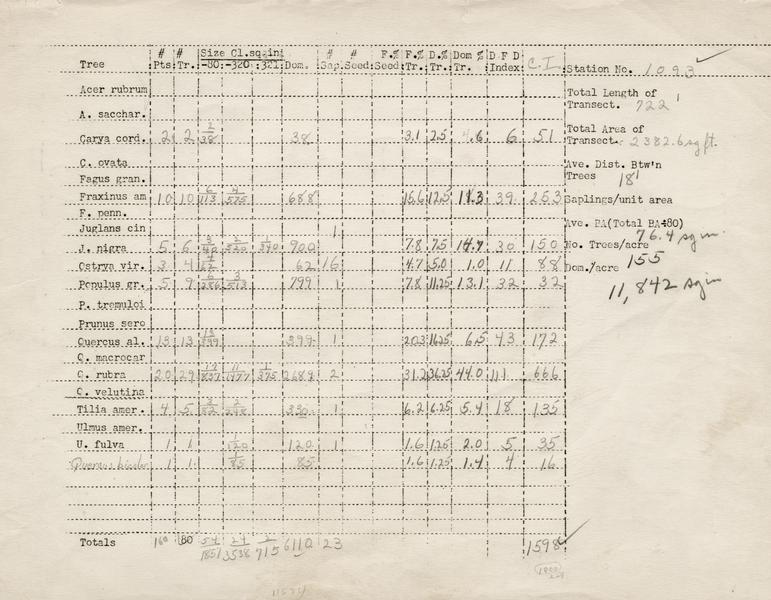 # # Size Cl.sq.in # # F.% F.% D.% Dom % D F D C.I.
Tree Pts. Tr. -80 -320 321 Dom. Sap. Seed. Seed Tr. Tr. Tr. Index
Station No. 1093
Acer rubrum
Total Length of
Transect. 722'
A. sacchar.
Total Area of
Transect. 2382.6 sq ft.
Carya cord. 2 2 2/38 38 3.1 2.5 .6 6 51
C. ovata
Ave. Dist. Btw'n
Trees 18'
Fagus gran.
Fraxinus am 10 10 6/113 4/575 688 15.6 12.5 11.3 39 253
Saplings/unit area
F. penn.
Juglans cin 1
Ave. BA(Total BA÷80)
76.4 sq in.
J. nigra 5 6 900 7.8 7.5 14.7 30 150
No. Trees/acre
155
Ostrya vir. 3 4 4/62 62 16 4.7 5.0 1.0 11 88
Dom./acre
11,842 sq in
Populus gr. 5 9 6/286 3/513 799 1 7.8 11.25 13.1 32 32
P. tremuloi
Prunus sero
Quercus al. 13 13 13/399 399 1 20.3 16.25 6.5 43 172
Q. macrocar
Q. rubra 20 29 17/837 11/1477 1/375 2689 2 31.2 36.25 44.0 111 666
Q. velutina
Tilia amer. 4 5 3/82 2/248 330 1 6.2 6.25 5.4 18 135
Ulmus amer.
U. fulva 1 1 1/120 120 1 1.6 1.25 2.0 5 35
Quercus bicolor 1 1 1/85 85 1.6 1.25 1.4 4 16
Totals 80 54/1851 24/3538 2/715 6110 23 1598